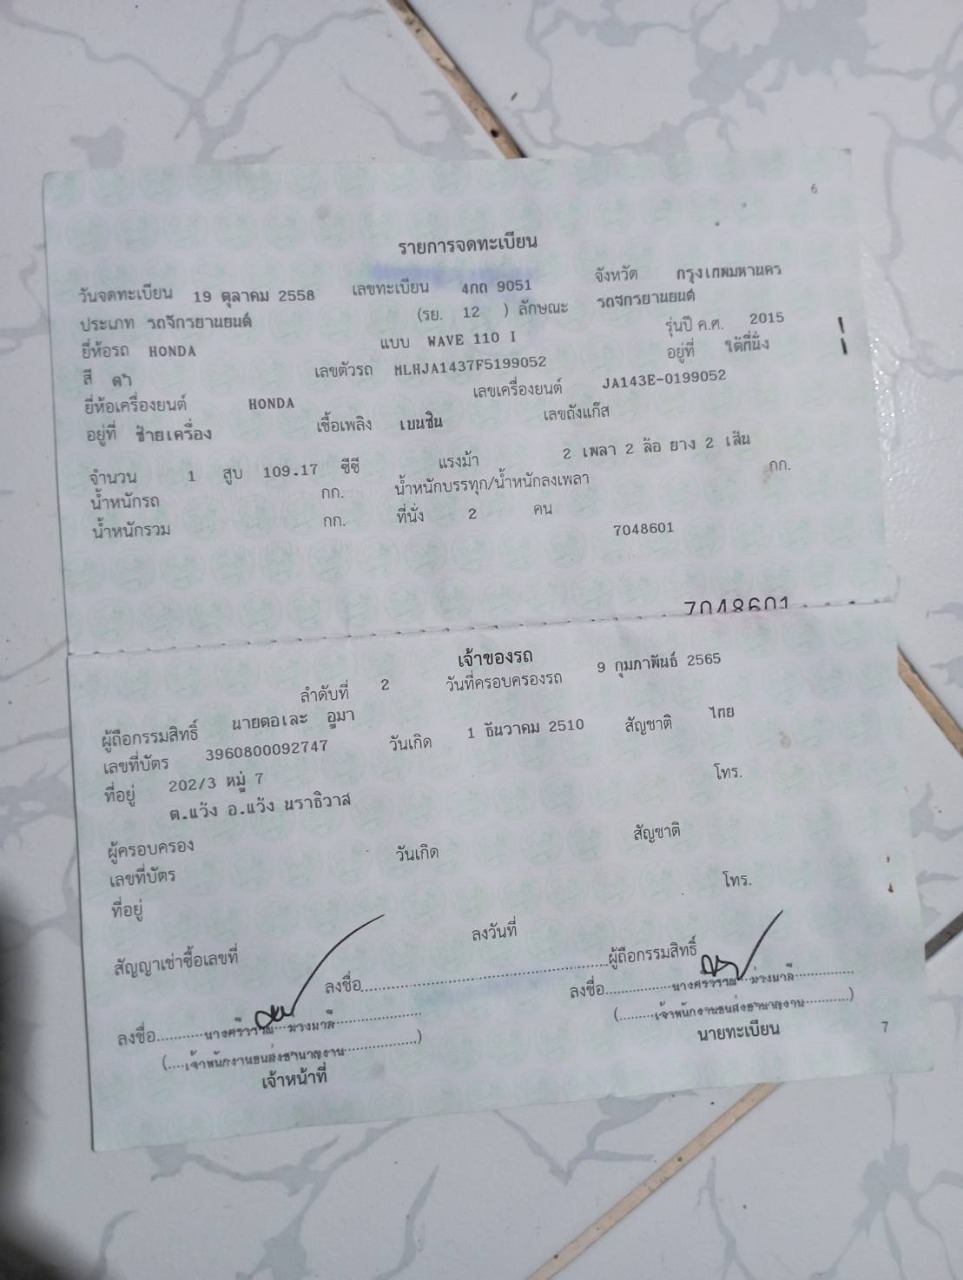 6
รายการจดทะเบียน
วันจดทะเบียน 19 ตุลาคม 2558 เลขทะเบียน 4กถ 9051 จังหวัด กรุงเทพมหานคร
ประเภท รถจักรยานยนต์ (รย. 12 ) ลักษณะ รถจักรยานยนต์
ยี่ห้อรถ HONDA แบบ WAVE 110 I รุ่นปี ค.ศ. 2015
สี ดำ เลขตัวรถ MLHJA1437F5199052 อยู่ที่ ใต้ที่นั่ง
ยี่ห้อเครื่องยนต์ HONDA เลขเครื่องยนต์ JA143E-0199052
อยู่ที่ ซ้ายเครื่อง เชื้อเพลิง เบนซิน เลขถังแก๊ส
จำนวน 1 สูบ 109.17 ซีซี แรงม้า 2 เพลา 2 ล้อ ยาง 2 เส้น
น้ำหนักรถ กก. น้ำหนักบรรทุก/น้ำหนักลงเพลา กก.
น้ำหนักรวม กก. ที่นั่ง 2 คน
7048601
7048601
เจ้าของรถ
ลำดับที่ 2 วันที่ครอบครองรถ 9 กุมภาพันธ์ 2565
ผู้ถือกรรมสิทธิ์ นายตอเละ อูมา
เลขที่บัตร 3960800092747 วันเกิด 1 ธันวาคม 2510 สัญชาติ ไทย
ที่อยู่ 202/3 หมู่ 7 โทร.
ต.แว้ง อ.แว้ง นราธิวาส
ผู้ครอบครอง
เลขที่บัตร วันเกิด สัญชาติ
ที่อยู่ โทร.
สัญญาเช่าซื้อเลขที่ ลงวันที่
ลงชื่อ ผู้ถือกรรมสิทธิ์
ลงชื่อ นางศรีวรรณ ม่วงมาลี ลงชื่อ นางศรีวรรณ ม่วงมาลี
(เจ้าพนักงานขนส่งชำนาญงาน) (เจ้าพนักงานขนส่งชำนาญงาน)
เจ้าหน้าที่ นายทะเบียน
7